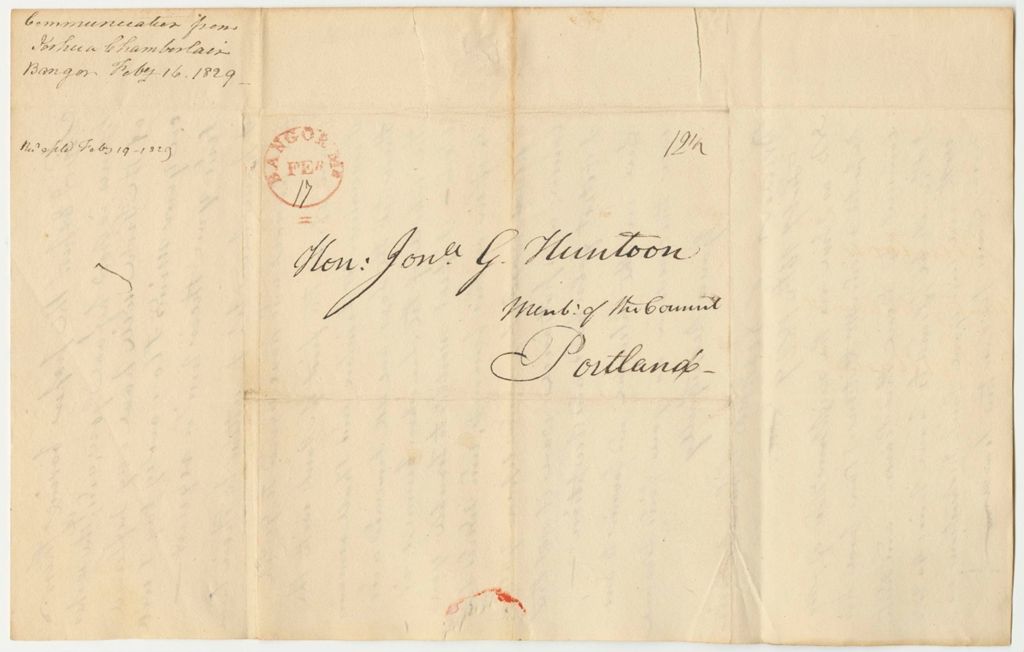 Communication from
Joshua Chamberlain
Bangor Feby 16. 1829
Feby 19 - 1829
BANGOR Me
FEB
17
12½
Hon: Jona G. Huntoon
Memb: of the Council
Portland